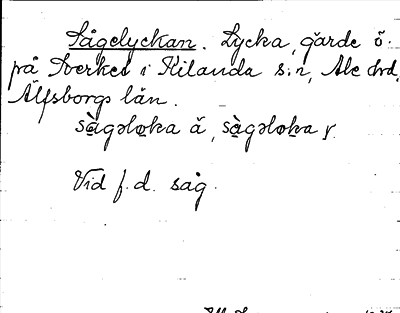 Sågelyckan. Lycka, gärde ö.
på Sverket i Kilanda s:n, Ale hrd,
Älfsborgs län.
sàgəlo̱ka ä, sàgəlo̱ka y.
Vid f.d. såg.